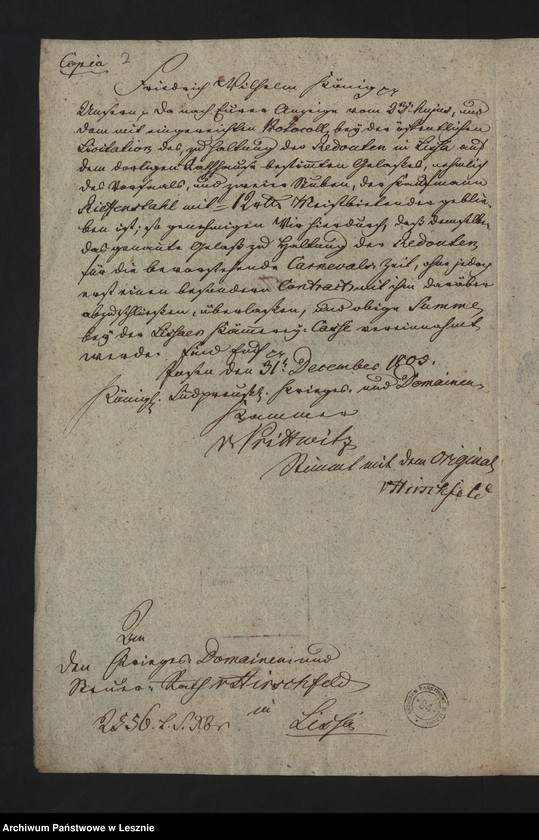 Copia 2
Friedrich Wilhelm König
Unsern. Da nach Eurer Anzeige vom 23t. hujus, und
dem mit eingereichten Protocoll, bey der öffentlichen
Licitation des, zu Haltung der Redouten in Lissa auf
dem dortigen Rathhause bestimten Gelasses, nehmlich
des Vorsaals, und zweier Stuben, der Kaufmann
Rieffenstahl mit 12 rtl. Meistbietender geblie-
ben ist; so genehmigen Wir hierdurch, daß demselben
das genante Gelaß zu Haltung der Redouten
für die bevorstehende Carnevals Zeit, ohne jedoch
erst einen besondern Contract mit ihm darüber
abzuschließen, überlassen, und obige Summe
bey der Lissaer Kämmerey-Casse vereinnahmt
werde. Sind Euch
Posen den 31t. December 1803.
Königl. Südpreuß. Krieges- und Domainen-
Kammer
v Prittwitz
Stimmt mit dem Original
v Hirschfeld
An
den Krieges- Domainen- und
Steuer-Rath v Hirschfeld
in
2556. Lissa
Archiwum Państwowe w Lesznie